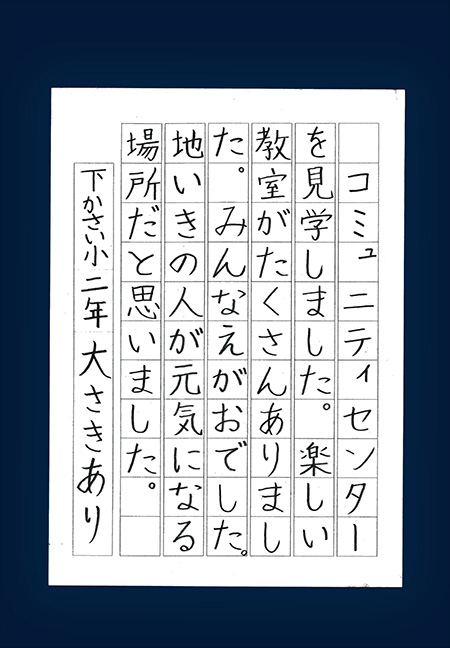 コミュニティセンター
を見学しました。楽しい
教室がたくさんありまし
た。みんなえがおでした。
地いきの人が元気になる
場所だと思いました。
下かさい小 二年 大さきあり